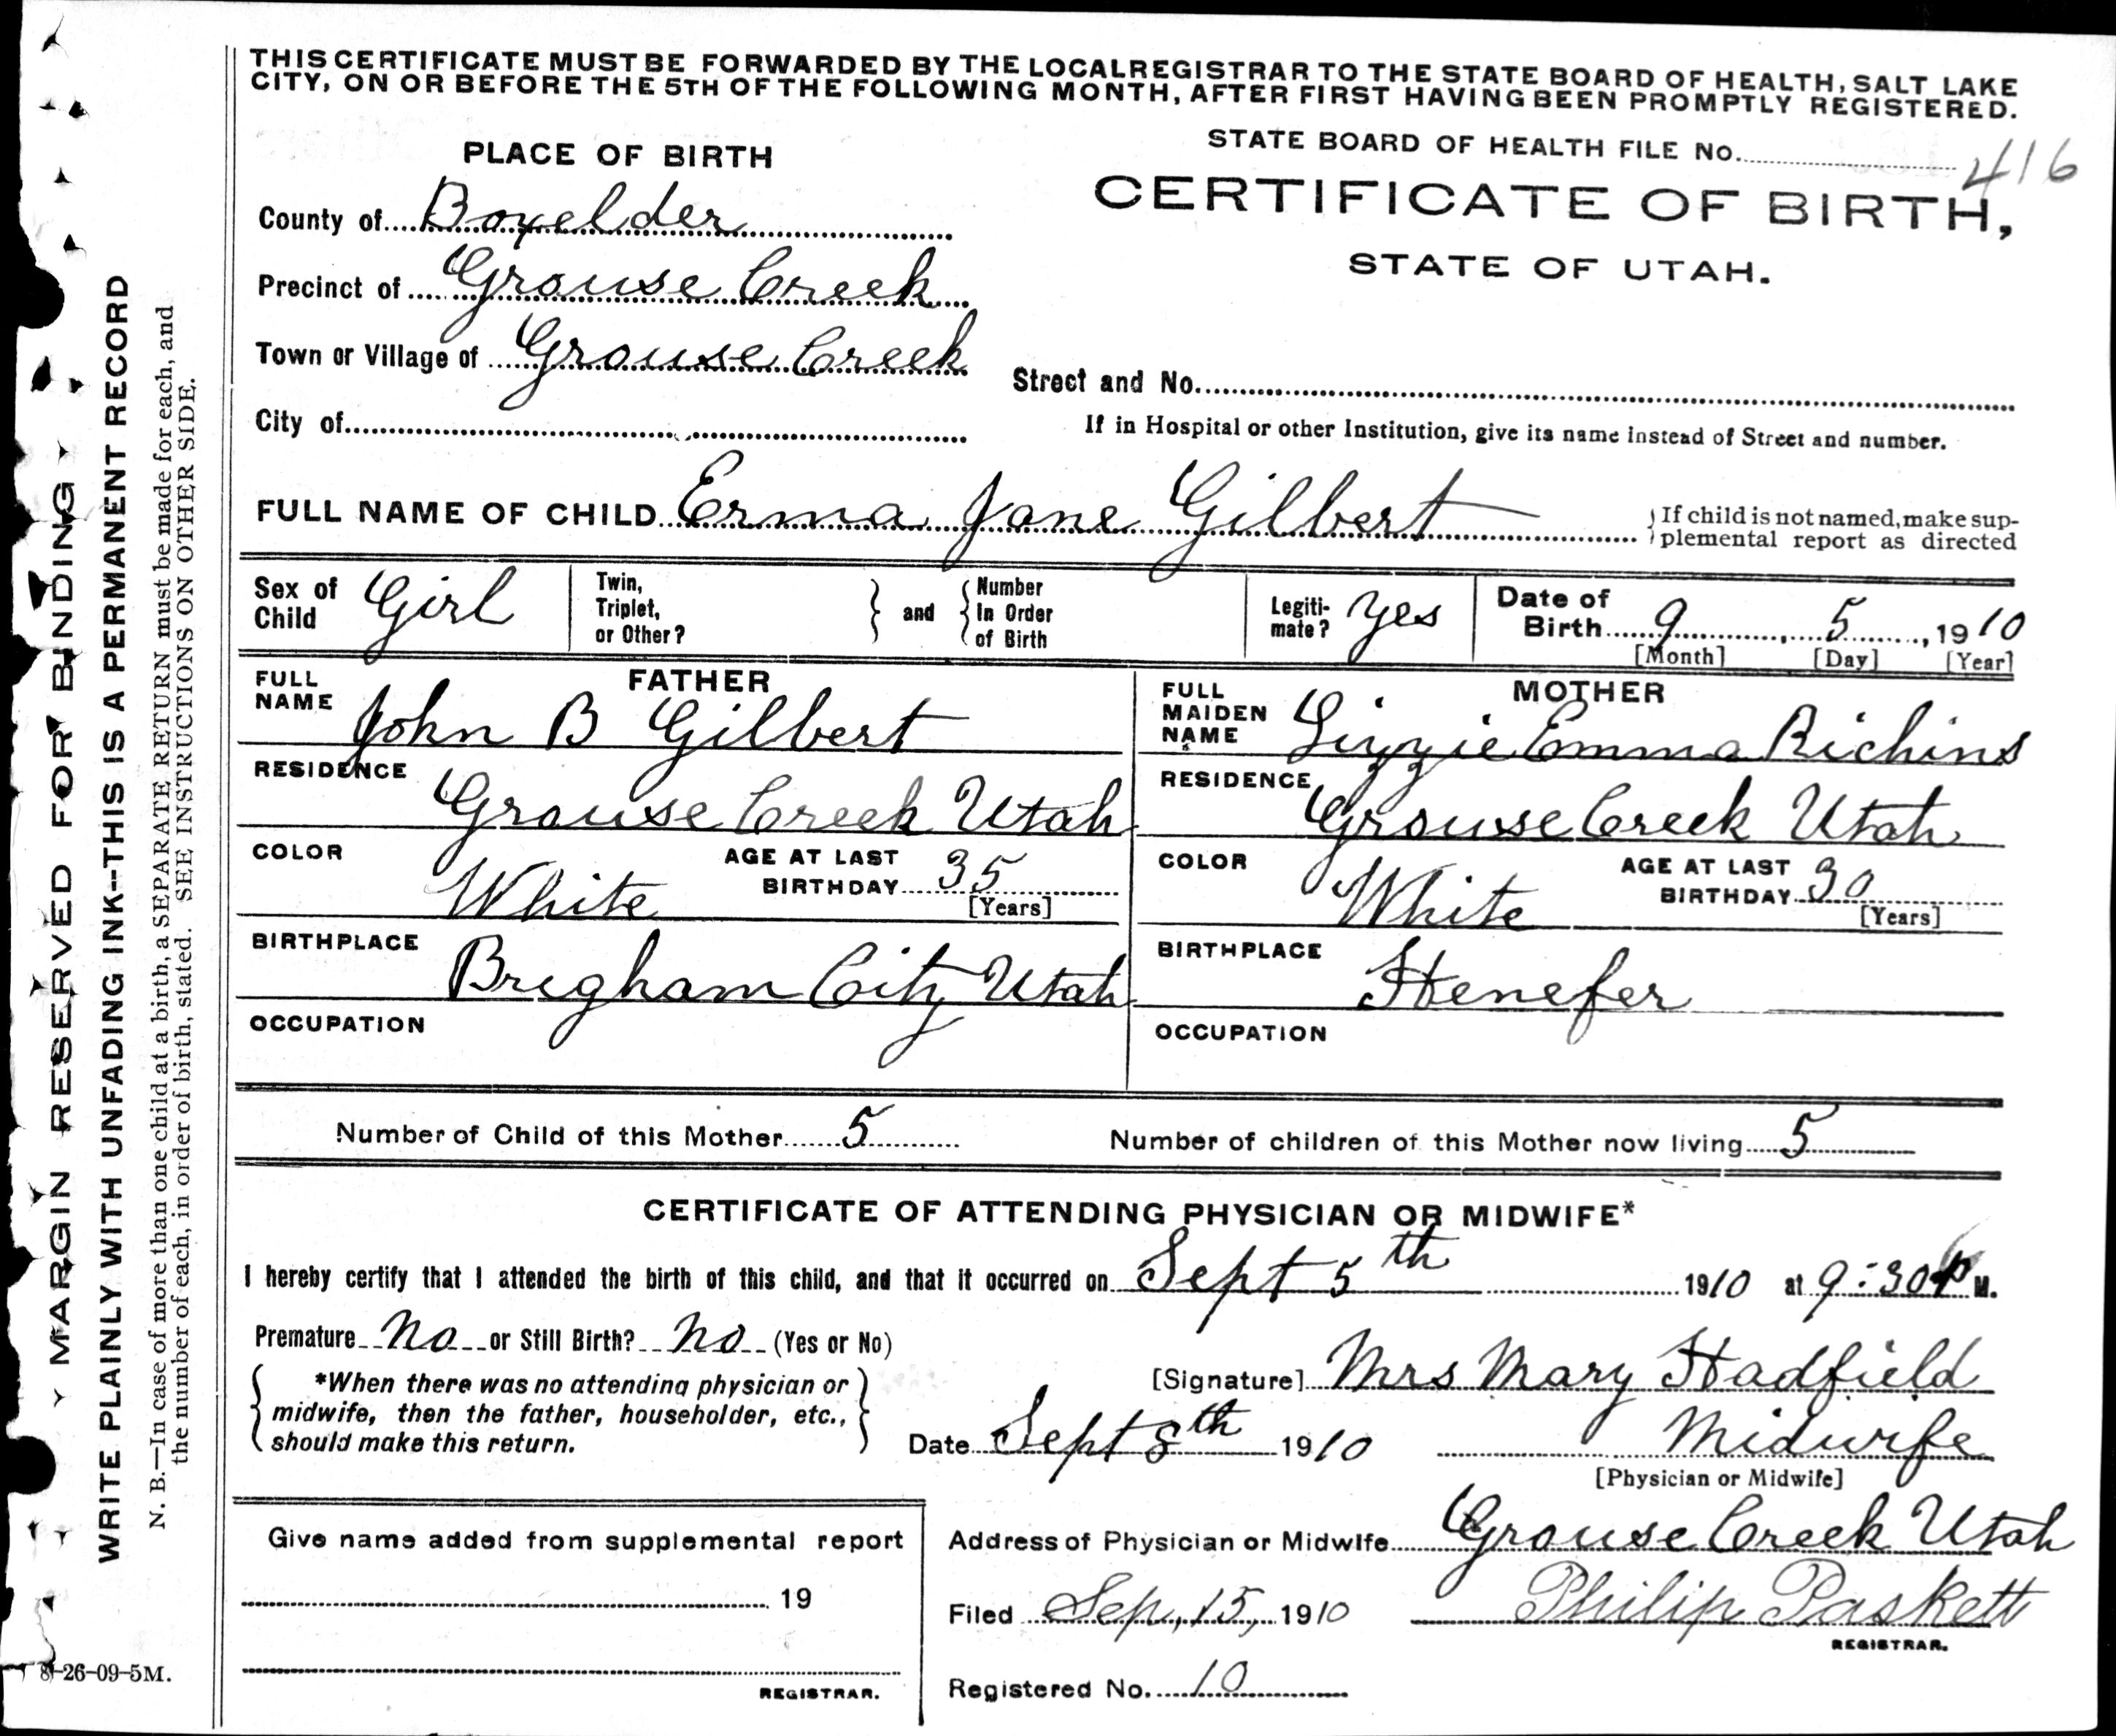 THIS CERTIFICATE MUST BE FORWARDED BY THE LOCAL REGISTRAR TO THE STATE BOARD OF HEALTH, SALT LAKE
CITY, ON OR BEFORE THE 5TH OF THE FOLLOWING MONTH, AFTER FIRST HAVING BEEN PROMPTLY REGISTERED.
PLACE OF BIRTH
STATE BOARD OF HEALTH FILE No. 416
CERTIFICATE OF BIRTH,
STATE OF UTAH.
County of Boxelder
Precinct of Grouse Creek
Town or Village of Grouse Creek
Street and No.
City of
If in Hospital or other Institution, give its name instead of Street and number.
FULL NAME OF CHILD Erma Jane Gilbert
If child is not named, make sup-
plemental report as directed
Sex of Child Girl
Twin, Triplet, or Other?
and
Number In Order of Birth
Legiti-mate? Yes
Date of Birth 9, 5, 1910
[Month] [Day] [Year]
FATHER
FULL NAME John B Gilbert
MOTHER
FULL MAIDEN NAME Lizzie Emma Richins
RESIDENCE Grouse Creek Utah
RESIDENCE Grouse Creek Utah
COLOR White
AGE AT LAST BIRTHDAY 35
[Years]
COLOR White
AGE AT LAST BIRTHDAY 30
[Years]
BIRTHPLACE Brigham City Utah
BIRTHPLACE Henefer
OCCUPATION
OCCUPATION
Number of Child of this Mother 5
Number of children of this Mother now living 5
CERTIFICATE OF ATTENDING PHYSICIAN OR MIDWIFE*
I hereby certify that I attended the birth of this child, and that it occurred on Sept 5th 1910 at 9:30 P M.
Premature No or Still Birth? No (Yes or No)
*When there was no attending physician or
midwife, then the father, householder, etc.,
should make this return.
[Signature] Mrs Mary Hadfield
Date Sept 8th 1910
Midwife
[Physician or Midwife]
Give name added from supplemental report
19
REGISTRAR.
Address of Physician or Midwife Grouse Creek Utah
Filed Sep, 15, 1910 Philip Paskett
REGISTRAR.
Registered No. 10
MARGIN RESERVED FOR BINDING
WRITE PLAINLY WITH UNFADING INK--THIS IS A PERMANENT RECORD
N. B.—In case of more than one child at a birth, a SEPARATE RETURN must be made for each, and
the number of each, in order of birth, stated. SEE INSTRUCTIONS ON OTHER SIDE.
8-26-09-5M.